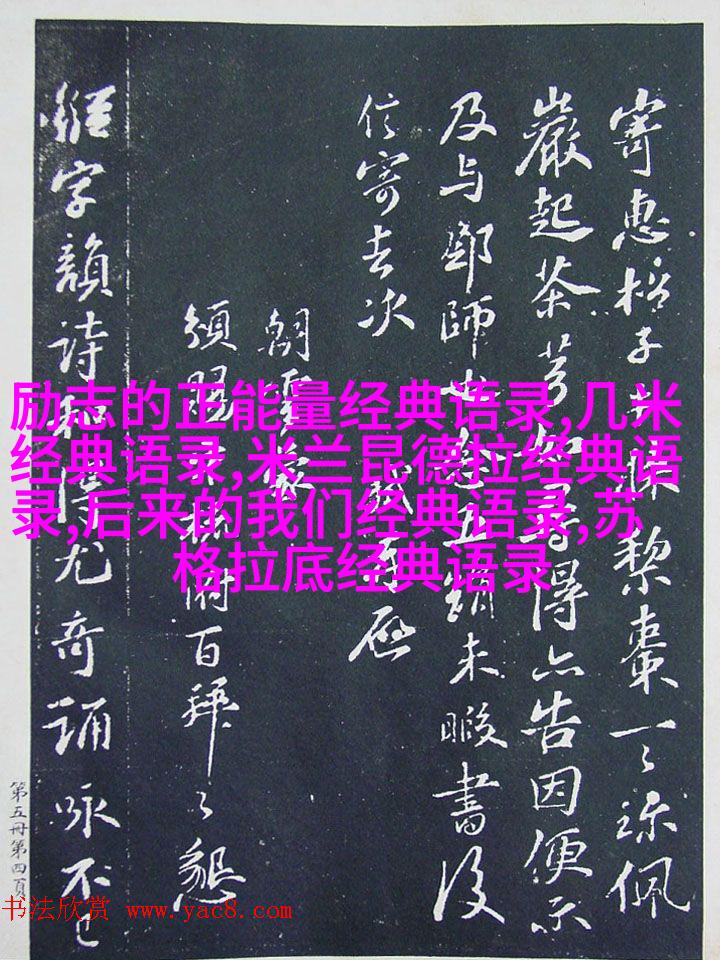 寄惠子黎棗一一珎佩
嚴起茶得告因便示
及与師五頌未暇書後
信寄去次再啟
朝雲蒙
頌賜附百拜々懇
字韻詩和得尤奇誦咏不已
励志的正能量经典语录,几米
经典语录,米兰昆德拉经典语
录,后来的我们经典语录,苏
格拉底经典语录
第五冊第四頁
书法欣赏 www.yac8.com